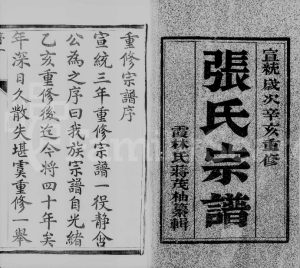 宣統歲次辛亥重修
張氏宗譜
霞林氏蔣茂柚纂輯
重修宗譜序
宣統三年重修宗譜一役靜舍
公為之序曰我族宗譜自光緒
乙亥重修後迄今將四十年矣
年深日久散失堪虞重修一舉